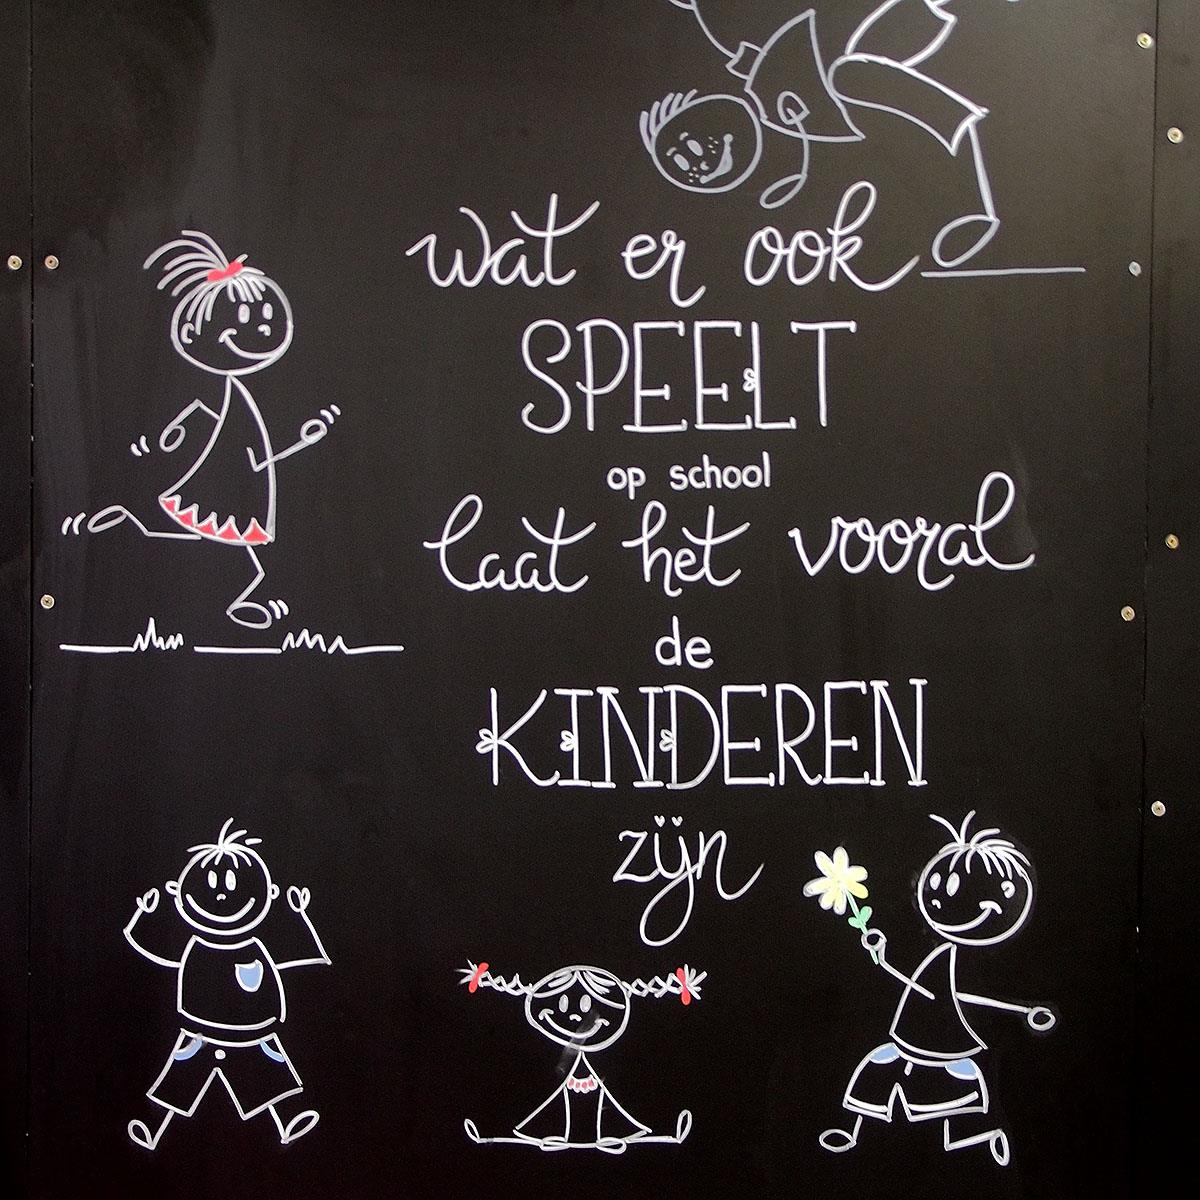 wat er ook
SPEELT
op school
laat het vooral
de
KINDEREN
zijn